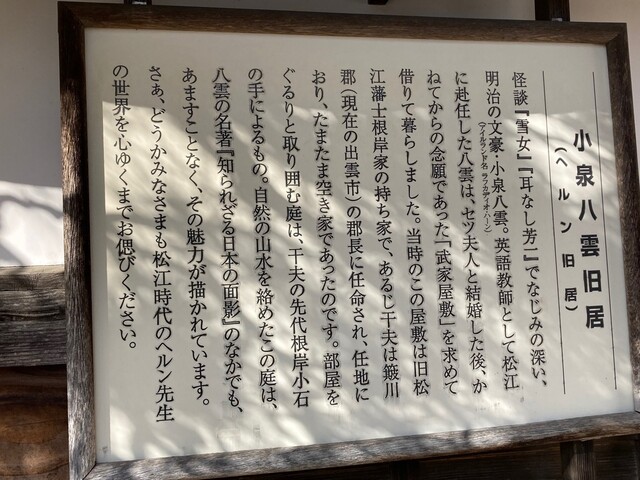 小泉八雲旧居
(ヘルン旧居)
怪談『雪女』『耳なし芳一』でなじみの深い、
明治の文豪・小泉八雲。英語教師として松江
(アイルランド名 ラフカディオ・ハーン)
に赴任した八雲は、セツ夫人と結婚した後、か
ねてからの念願であった「武家屋敷」を求めて
借りて暮らしました。当時のこの屋敷は旧松
江藩士根岸家の持ち家で、あるじ干夫は簸川
郡(現在の出雲市)の郡長に任命され、任地に
おり、たまたま空き家であったのです。部屋を
ぐるりと取り囲む庭は、干夫の先代根岸小石
の手によるもの。自然の山水を絡めたこの庭は、
八雲の名著『知られざる日本の面影』のなかでも、
あますことなく、その魅力が描かれています。
さぁ、どうかみなさまも松江時代のヘルン先生
の世界を心ゆくまでお偲びください。